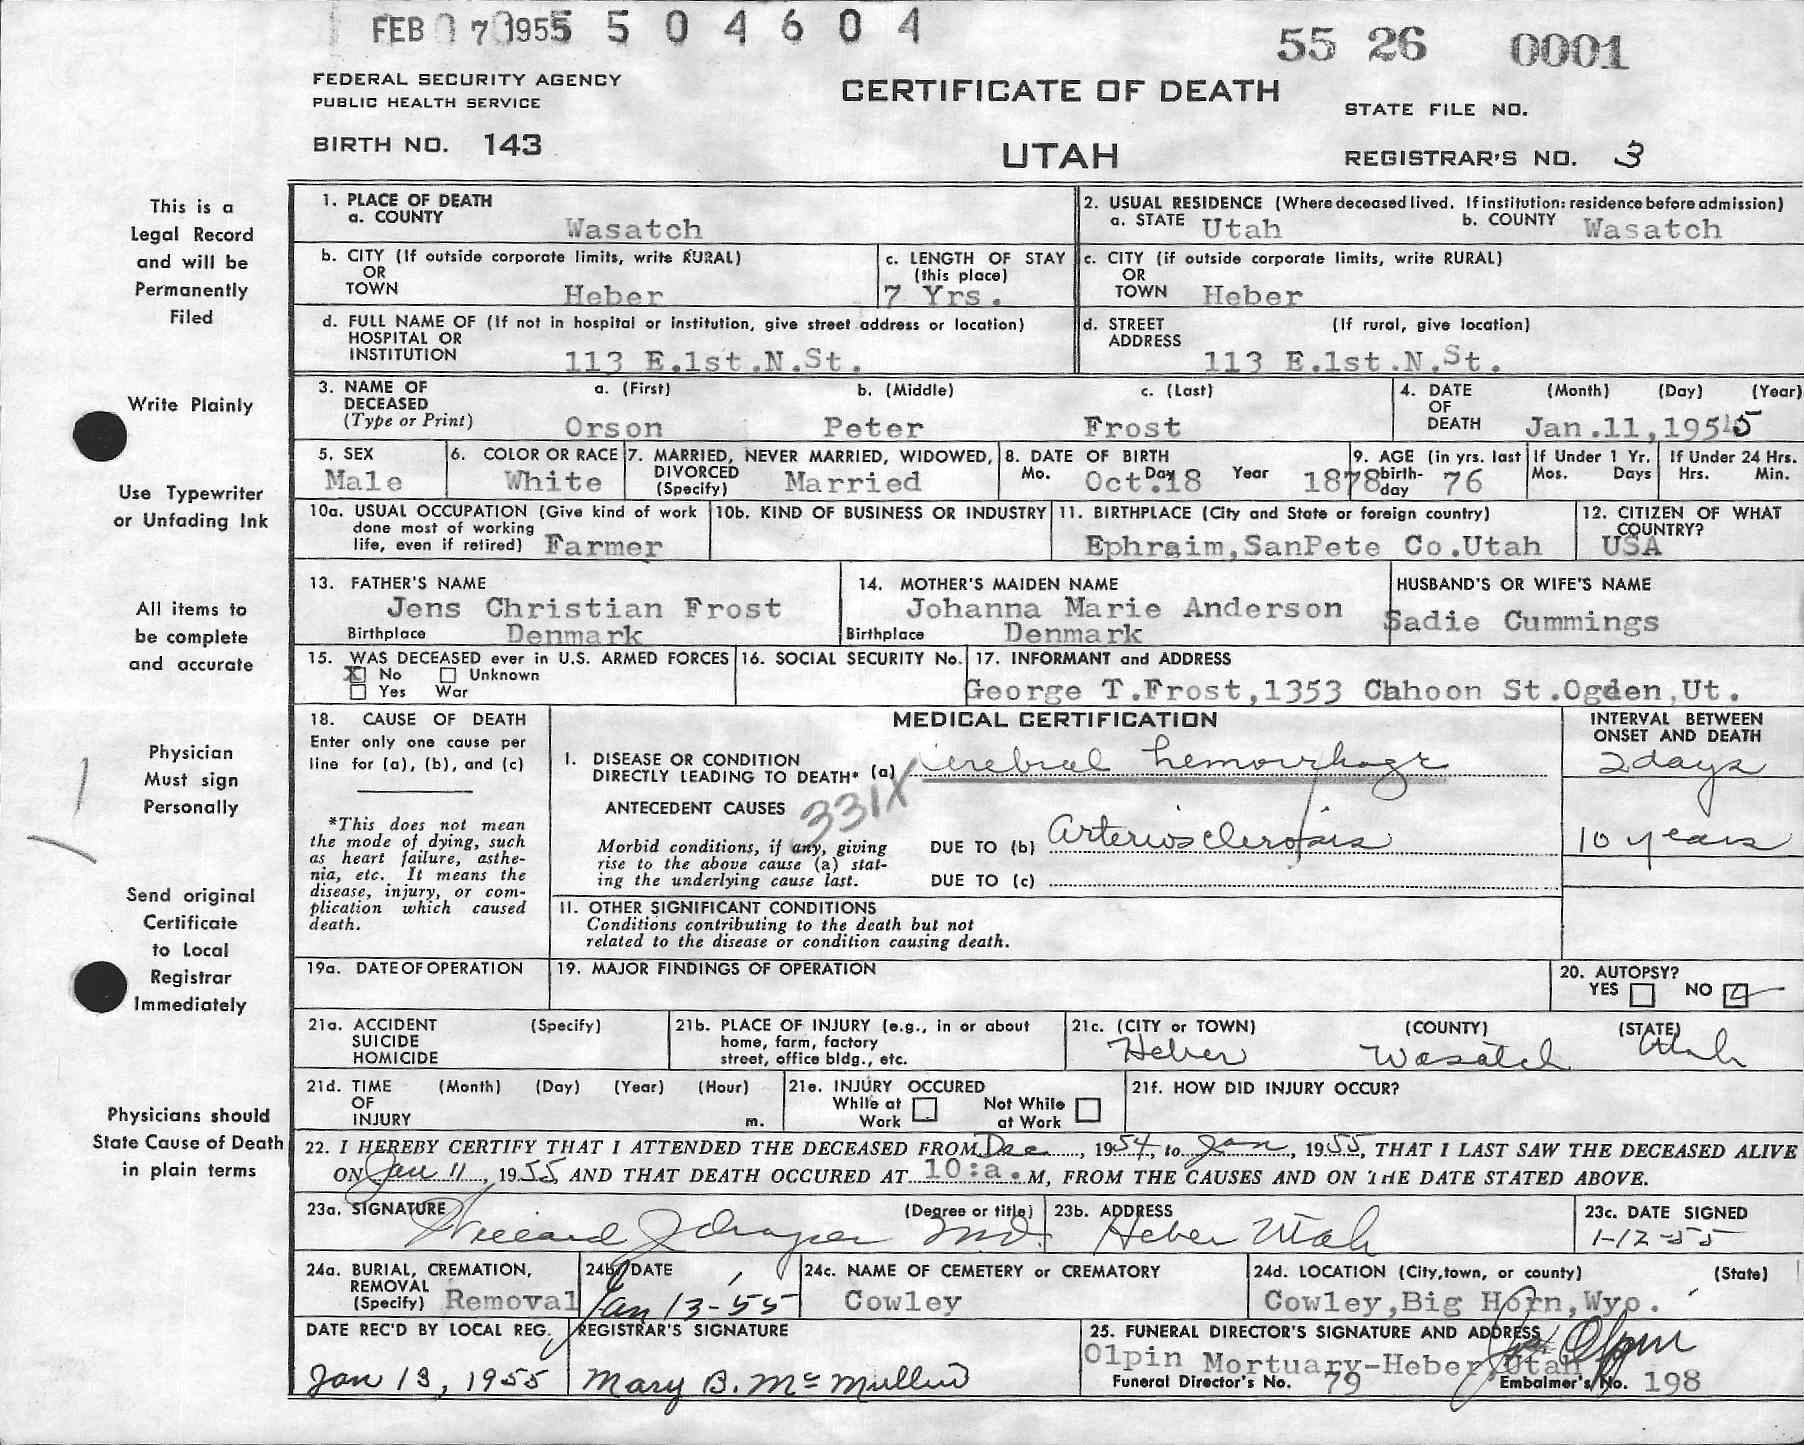 FEB 07 1955 5 0 4 6 0 4
55 26 0001
FEDERAL SECURITY AGENCY
PUBLIC HEALTH SERVICE
CERTIFICATE OF DEATH
STATE FILE NO.
BIRTH NO. 143
UTAH
REGISTRAR'S NO. 3
This is a
Legal Record
and will be
Permanently
Filed
Write Plainly
Use Typewriter
or Unfading Ink
All items to
be complete
and accurate
Physician
Must sign
Personally
Send original
Certificate
to Local
Registrar
Immediately
Physicians should
State Cause of Death
in plain terms
1. PLACE OF DEATH
a. COUNTY Wasatch
2. USUAL RESIDENCE (Where deceased lived. If institution: residence before admission)
a. STATE Utah b. COUNTY Wasatch
b. CITY (If outside corporate limits, write RURAL)
OR
TOWN Heber
c. LENGTH OF STAY
(this place)
7 Yrs.
c. CITY (if outside corporate limits, write RURAL)
OR
TOWN Heber
d. FULL NAME OF (If not in hospital or institution, give street address or location)
HOSPITAL OR
INSTITUTION 113 E.1st.N.St.
d. STREET (If rural, give location)
ADDRESS 113 E.1st.N.St.
3. NAME OF a. (First) b. (Middle) c. (Last)
DECEASED
(Type or Print) Orson Peter Frost
4. DATE (Month) (Day) (Year)
OF
DEATH Jan.11,1955
5. SEX
Male
6. COLOR OR RACE
White
7. MARRIED, NEVER MARRIED, WIDOWED,
DIVORCED
(Specify) Married
8. DATE OF BIRTH
Mo. Oct. Day 18 Year 1878
9. AGE (in yrs. last
birth-
day 76
If Under 1 Yr.
Mos. Days
If Under 24 Hrs.
Hrs. Min.
10a. USUAL OCCUPATION (Give kind of work
done most of working
life, even if retired) Farmer
10b. KIND OF BUSINESS OR INDUSTRY
11. BIRTHPLACE (City and State or foreign country)
Ephraim,SanPete Co.Utah
12. CITIZEN OF WHAT
COUNTRY?
USA
13. FATHER'S NAME
Jens Christian Frost
Birthplace Denmark
14. MOTHER'S MAIDEN NAME
Johanna Marie Anderson
Birthplace Denmark
HUSBAND'S OR WIFE'S NAME
Sadie Cummings
15. WAS DECEASED ever in U.S. ARMED FORCES
X No Unknown
Yes War
16. SOCIAL SECURITY No.
17. INFORMANT and ADDRESS
George T.Frost,1353 Cahoon St.Ogden,Ut.
18. CAUSE OF DEATH
Enter only one cause per
line for (a), (b), and (c)
*This does not mean
the mode of dying, such
as heart failure, asthe-
nia, etc. It means the
disease, injury, or com-
plication which caused
death.
MEDICAL CERTIFICATION
INTERVAL BETWEEN
ONSET AND DEATH
I. DISEASE OR CONDITION
DIRECTLY LEADING TO DEATH* (a) Cerebral hemorrhage 2 days
331X
ANTECEDENT CAUSES
Morbid conditions, if any, giving
rise to the above cause (a) stat-
ing the underlying cause last.
DUE TO (b) Arteriosclerosis 10 years
DUE TO (c)
II. OTHER SIGNIFICANT CONDITIONS
Conditions contributing to the death but not
related to the disease or condition causing death.
19a. DATE OF OPERATION
19. MAJOR FINDINGS OF OPERATION
20. AUTOPSY?
YES NO
21a. ACCIDENT (Specify)
SUICIDE
HOMICIDE
21b. PLACE OF INJURY (e.g., in or about
home, farm, factory
street, office bldg., etc.
21c. (CITY or TOWN) (COUNTY) (STATE)
Heber Wasatch Utah
21d. TIME (Month) (Day) (Year) (Hour)
OF
INJURY m.
21e. INJURY OCCURED
While at Work
Not While at Work
21f. HOW DID INJURY OCCUR?
22. I HEREBY CERTIFY THAT I ATTENDED THE DECEASED FROM Dec, 1954, to Jan, 1955, THAT I LAST SAW THE DECEASED ALIVE
ON Jan 11, 1955 AND THAT DEATH OCCURED AT 10:a.M, FROM THE CAUSES AND ON THE DATE STATED ABOVE.
23a. SIGNATURE (Degree or title)
M.D.
23b. ADDRESS
Heber Utah
23c. DATE SIGNED
1-12-55
24a. BURIAL, CREMATION,
REMOVAL
(Specify) Removal
24b. DATE
Jan 13-55
24c. NAME OF CEMETERY or CREMATORY
Cowley
24d. LOCATION (City,town, or county) (State)
Cowley,Big Horn,Wyo.
DATE REC'D BY LOCAL REG.
Jan 13, 1955
REGISTRAR'S SIGNATURE
Mary B. McMullin
25. FUNERAL DIRECTOR'S SIGNATURE AND ADDRESS
Olpin Mortuary-Heber,Utah
Funeral Director's No. 79 Embalmer's No. 198